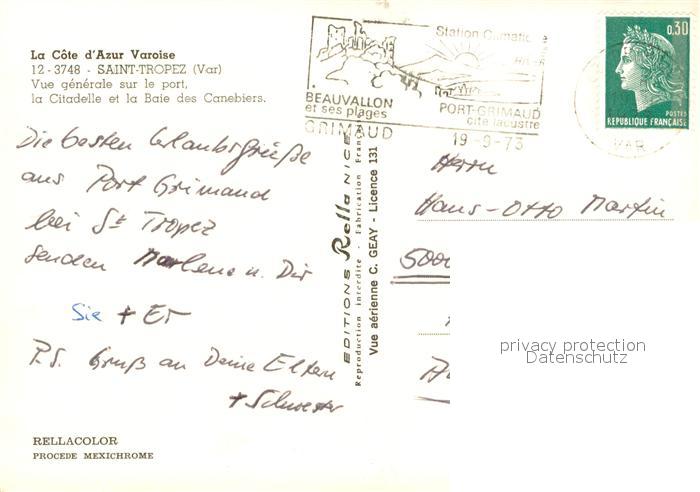 La Côte d'Azur Varoise
12-3748 - SAINT-TROPEZ (Var)
Vue générale sur le port,
la Citadelle et la Baie des Canebiers.
Station Climatic
BEAUVALLON
et ses plages
PORT-GRIMAUD
cité lacustre
GRIMAUD
19-9-73
VAR
0,30
POSTES
REPUBLIQUE FRANÇAISE
Die besten Urlaubsgrüße
aus Port Grimaud
bei St Tropez
senden Marlene u. Dir
Sie + Er
P.S. Gruß an Deine Eltern
+ Schwester
EDITIONS Rella NICE
Reproduction interdite - Fabrication Franç
Vue aérienne C. GEAY - Licence 131
Herrn
Hans-Otto Martin
500
privacy protection
Datenschutz
RELLACOLOR
PROCEDE MEXICHROME